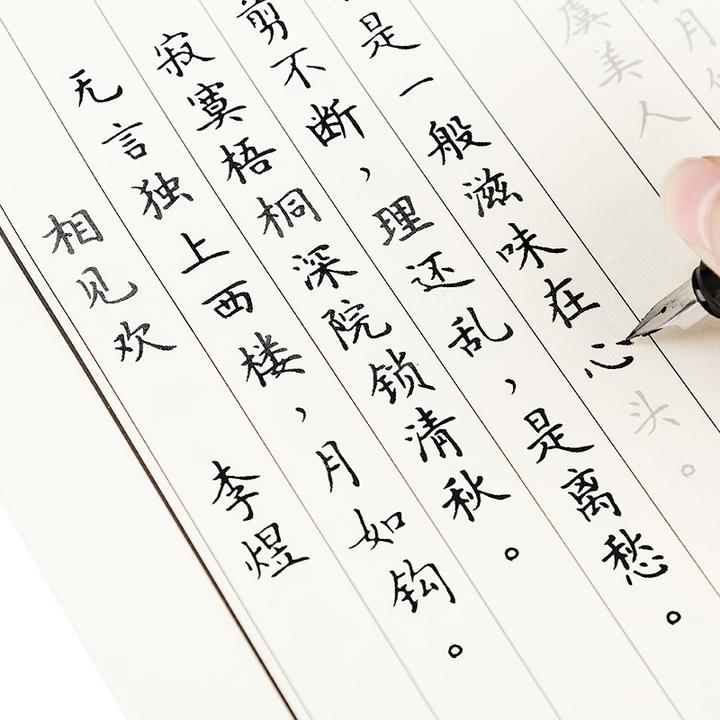 相见欢 李煜
无言独上西楼,月如钩。
寂寞梧桐深院锁清秋。
剪不断,理还乱,是离愁。
是一般滋味在心头。
虞美人
月